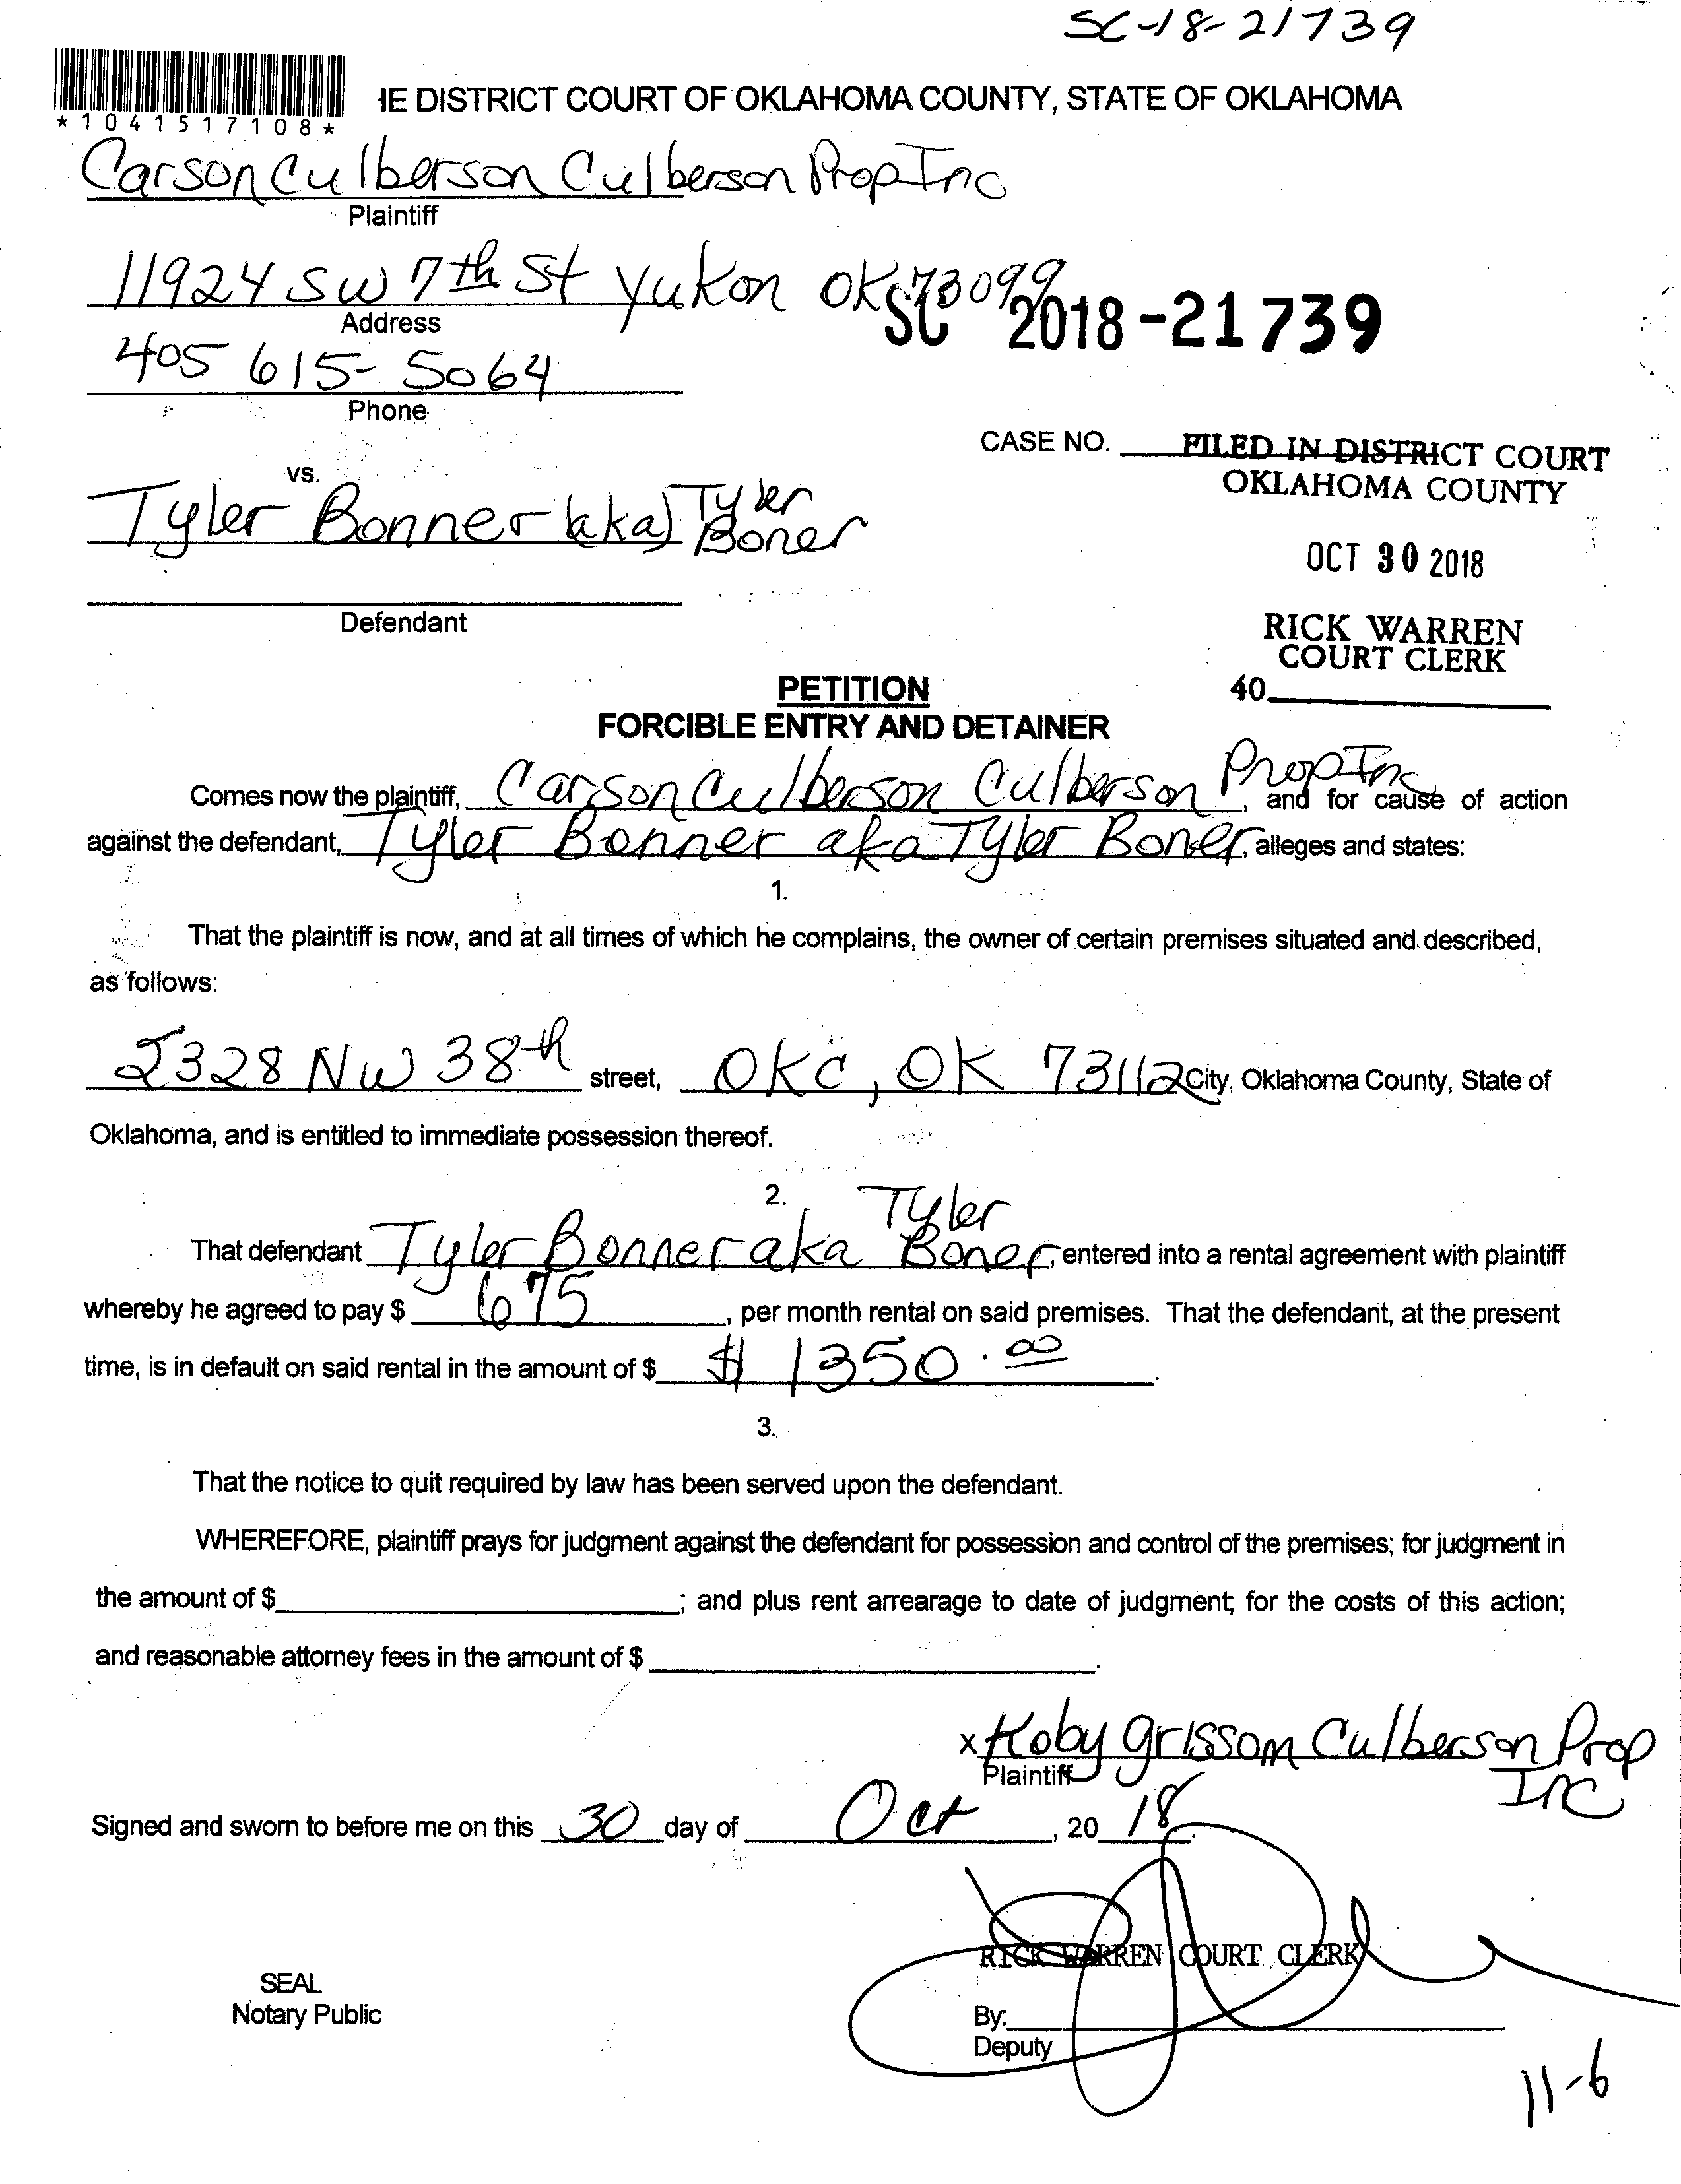 SC-18-21739
HE DISTRICT COURT OF OKLAHOMA COUNTY, STATE OF OKLAHOMA
*1041517108*
Carson Culberson Culberson Prop Inc
Plaintiff
11924 SW 7th St Yukon OK 73099
Address
SC 2018-21739
405 615-5064
Phone
CASE NO. FILED IN DISTRICT COURT
OKLAHOMA COUNTY
vs.
Tyler Bonner (aka) Tyler Boner
OCT 30 2018
Defendant
RICK WARREN
COURT CLERK
40
PETITION
FORCIBLE ENTRY AND DETAINER
Comes now the plaintiff, Carson Culberson Culberson Prop Inc, and for cause of action
against the defendant, Tyler Bonner aka Tyler Boner, alleges and states:
1.
That the plaintiff is now, and at all times of which he complains, the owner of certain premises situated and described,
as follows:
2328 NW 38th street, OKC, OK 73112 City, Oklahoma County, State of
Oklahoma, and is entitled to immediate possession thereof.
2.
That defendant Tyler Bonner aka Tyler Boner, entered into a rental agreement with plaintiff
whereby he agreed to pay $ 675, per month rental on said premises. That the defendant, at the present
time, is in default on said rental in the amount of $ $ 1350.00.
3.
That the notice to quit required by law has been served upon the defendant.
WHEREFORE, plaintiff prays for judgment against the defendant for possession and control of the premises; for judgment in
the amount of $ ; and plus rent arrearage to date of judgment; for the costs of this action;
and reasonable attorney fees in the amount of $ .
x Koby Grissom Culberson Prop Inc
Plaintiff
Signed and sworn to before me on this 30 day of Oct, 20 18.
RICK WARREN COURT CLERK
SEAL
Notary Public
By:
Deputy
11-6